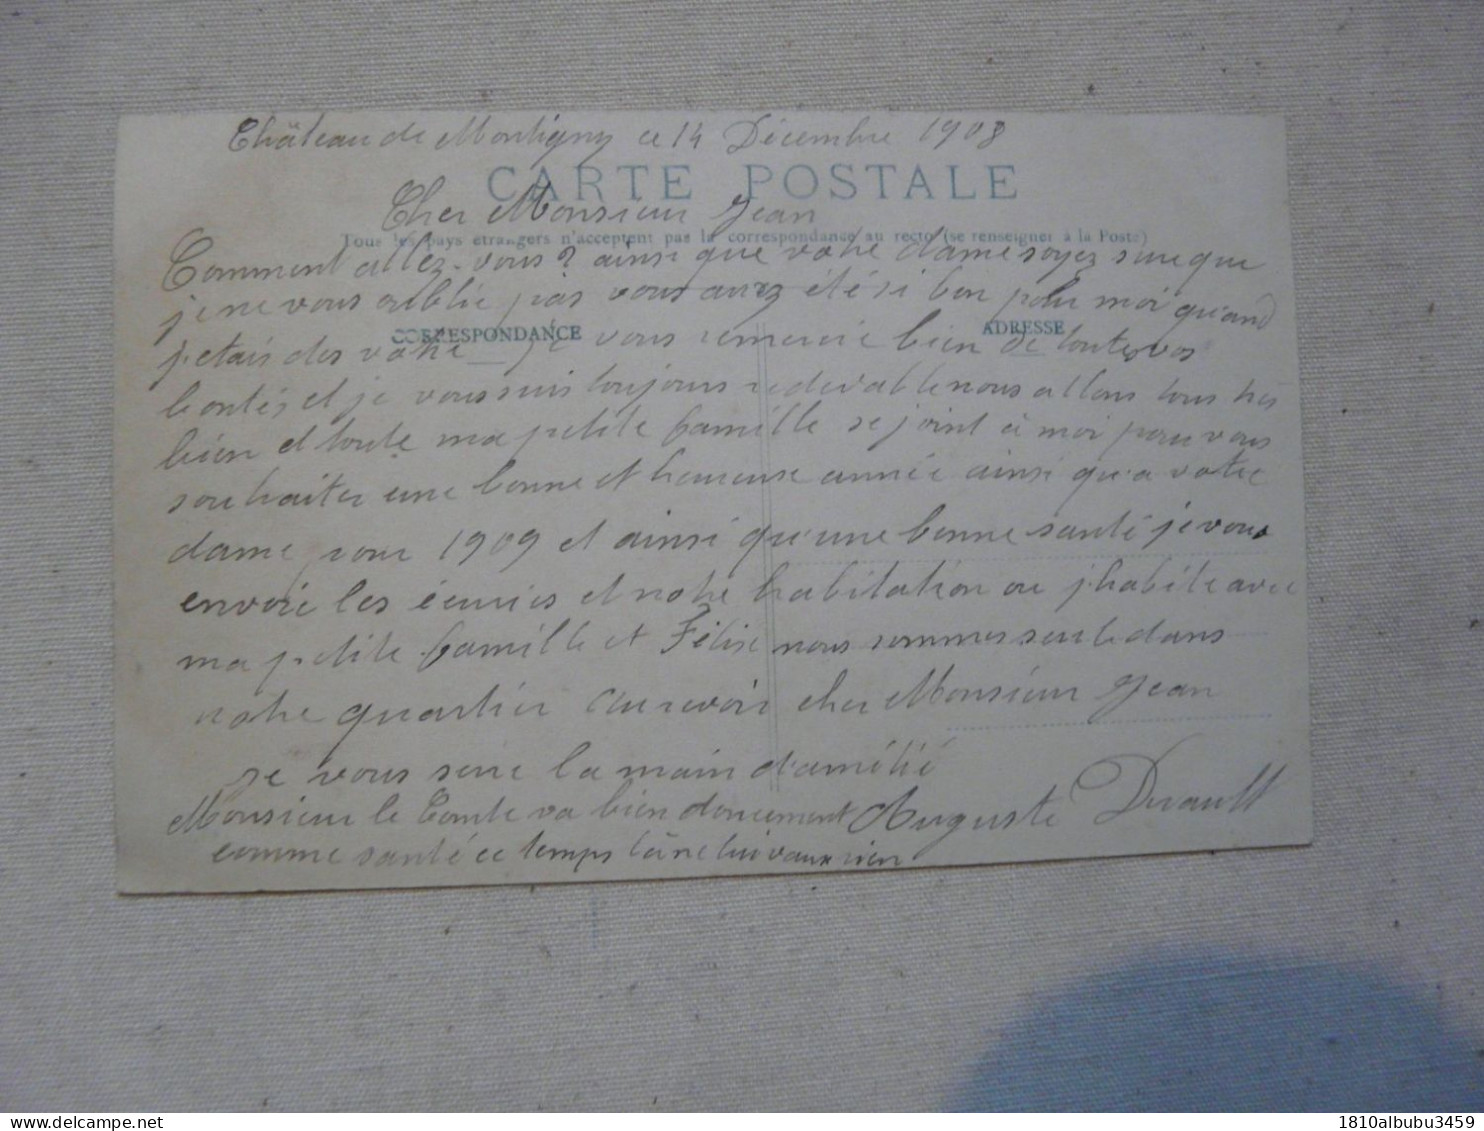 Château de Montigny ce 14 Décembre 1908
CARTE POSTALE
Cher Monsieur Jean
Tous les pays étrangers n'acceptent pas la correspondance au recto (se renseigner à la Poste)
Comment allez-vous? ainsi que votre dame soyez sure que
je ne vous oublie pas vous avez été si bon pour moi quand
CORRESPONDANCE
ADRESSE
jetais ches votre je vous remercie bien de toutes vos
bontés et je vous suis toujours redevable nous allons tous très
bien et toute ma petite famille se joint à moi pour vous
souhaiter une bonne et heureuse année ainsi qu'a votre
dame pour 1909 et ainsi qu'une bonne santé je vous
envoie les écuries et notre habitation ou j'habite avec
ma petite famille et Félix nous sommes seule dans
notre quartier Au revoir cher Monsieur Jean
je vous serre la main d'amitié
Monsieur le Comte va bien doucement Auguste Druault
comme santé ce temps là ne lui vaux rien
delcampe.net
1810albubu3459